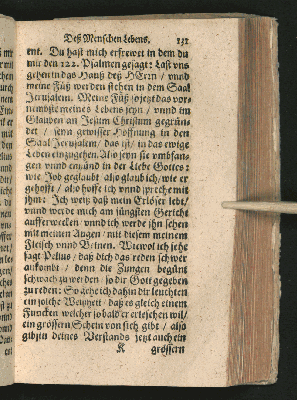 Deß Menschen Lebens. 131
ent. Du hast mich erfrewet in dem du
mit den 122. Psalmen gesagt: Last uns
gehen in das Hauß deß HErrn / unnd
meine Füß werden stehen in dem Saal
Jerusalem. Meine Füß so jetzt das vor-
nembste meines Lebens seyn / unnd im
Glauben an Jesum Christum gegrün-
det / seyn gewisser Hoffnung in den
Saal Jerusalem / das ist / in das ewige
Leben einzugehen. Also seyn sie umbfan-
gen unnd in der Liebe Gottes
wie Job geglaubt also glaub ich / wie er
gehofft / also hoffe ich unnd spreche mit
ihm: Ich weiß daß mein Erlöser lebt /
unnd werde mich am jüngsten Gericht
aufferwecken / unnd ich werde ihn sehen
mit meinen Augen / mit diesem meinem
Fleisch unnd Beinen. Wiewol ich sehe
sagt / daß dich das reden schwer
ankombt / denn die Zungen begünt
schwach zu werden / so dir Gott gegeben
zu reden: So gehe ich dahin dir leuchten
ein solche Weißheit / daß es gleich einem
Funcken welcher so bald er erleschen wil /
ein grössern Schein von sich gibt / also
gibt in deines Verstands jetzt auch ein
K grössern